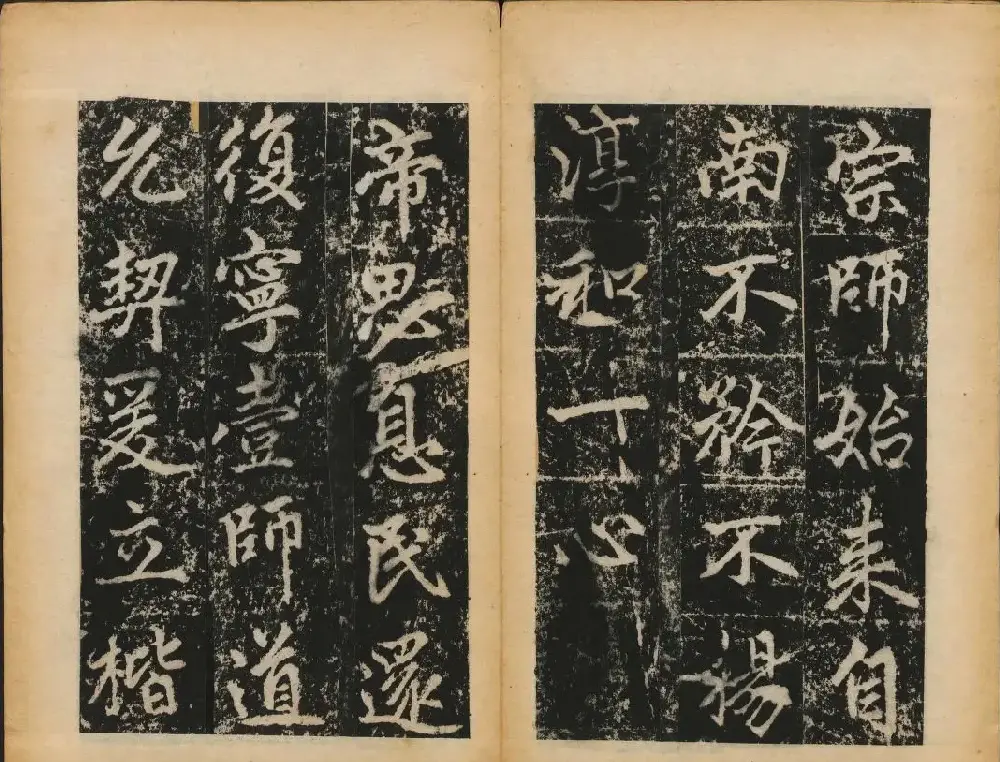 宗師始来自
南不矜不揚
淳和一心
帝思息民還
復寧壹師道
允契爰立楷